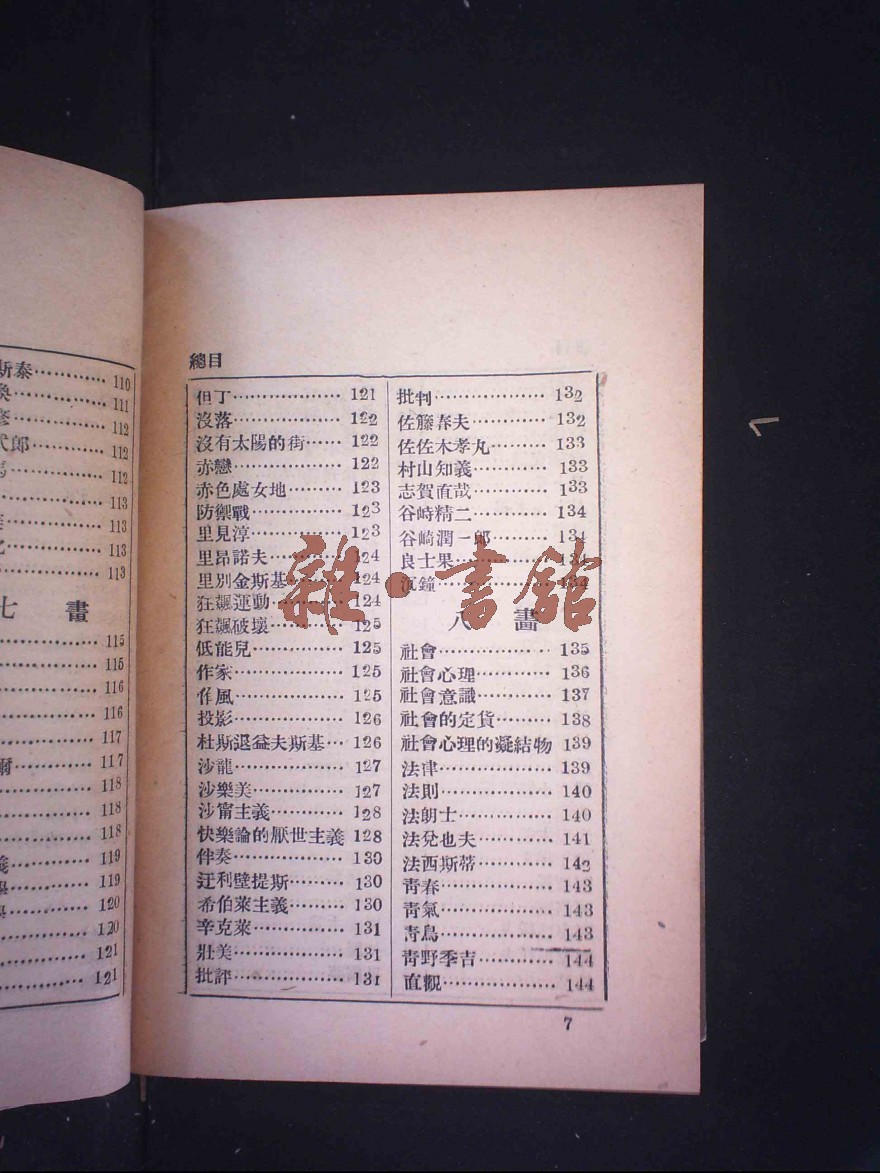 斯泰………… 110
111
112
式郎……… 112
112
113
113
113
113
七 畫
115
115
116
116
117
爾………… 117
118
118
118
119
119
120
120
121
121
總目
但丁……………… 121
沒落……………… 122
沒有太陽的街…… 122
赤戀……………… 122
赤色處女地……… 123
防禦戰…………… 123
里見淳…………… 123
里昂諾夫………… 124
里別金斯基……… 124
狂飆運動………… 124
狂飆破壞………… 125
低能兒…………… 125
作家……………… 125
作風……………… 125
投影……………… 126
杜斯退益夫斯基… 126
沙龍……………… 127
沙樂美…………… 127
沙甯主義………… 128
快樂論的厭世主義 128
伴奏……………… 130
迂利壁提斯……… 130
希伯萊主義……… 130
辛克萊…………… 131
壯美……………… 131
批評……………… 131
批判……………… 132
佐籐春夫………… 132
佐佐木孝丸……… 133
村山知義………… 133
志賀直哉………… 133
谷崎精二………… 134
谷崎潤一郎……… 134
良士果…………… 134
沉鐘……………… 134
八 畫
社會……………… 135
社會心理………… 136
社會意識………… 137
社會的定貨……… 138
社會心理的凝結物 139
法律……………… 139
法則……………… 140
法朗士…………… 140
法兌也夫………… 141
法西斯蒂………… 142
青春……………… 143
青氣……………… 143
青鳥……………… 143
青野季吉………… 144
直觀……………… 144
7
雜·書館